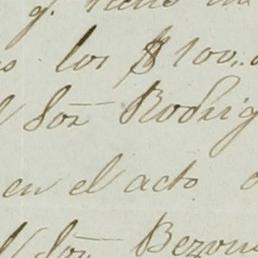 q. tiene
los $100.
Sor. Rodrig
en el acto
Sor. Bezon